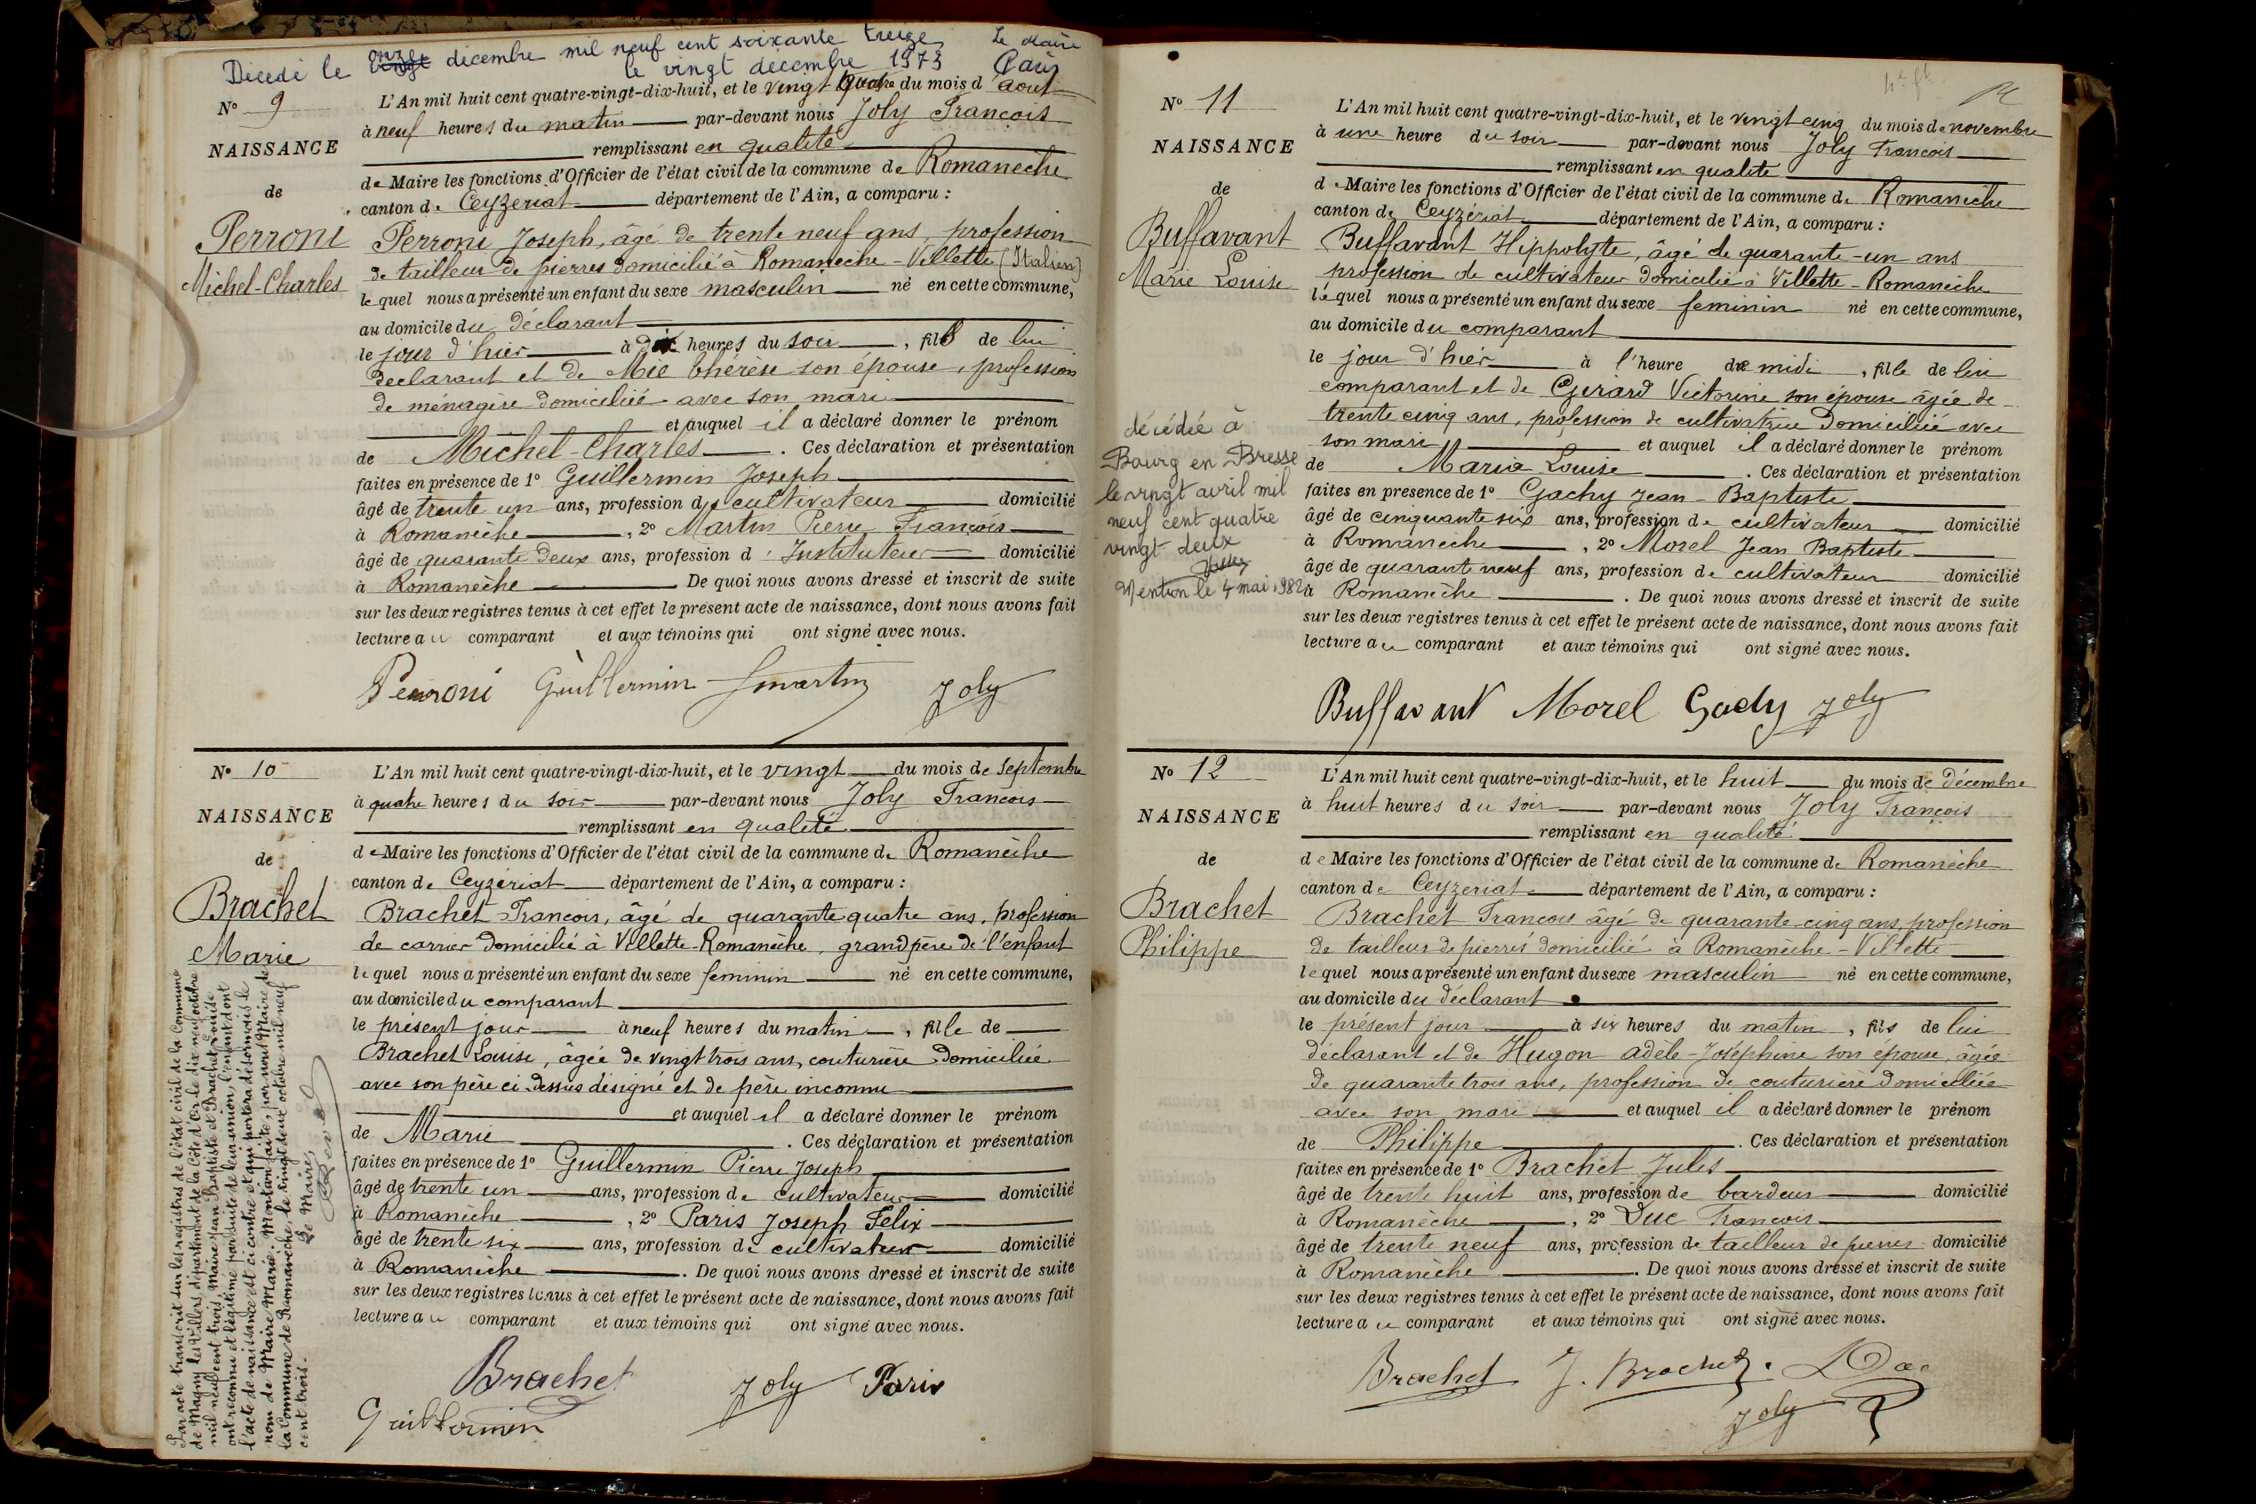 Décédé le onze décembre mil neuf cent soixante treize Le Maire
le vingt décembre 1973
N° 9
NAISSANCE
de
Perroni
Michel-Charles
L'An mil huit cent quatre-vingt-dix-huit, et le vingt quatre du mois d'août
à neuf heures du matin par-devant nous Joly François
remplissant en qualité
de Maire les fonctions d'Officier de l'état civil de la commune de Romanèche
canton de Ceyzériat département de l'Ain, a comparu :
Perroni Joseph, âgé de trente neuf ans, profession
de tailleur de pierres domicilié à Romanèche-Villette (Italien)
lequel nous a présenté un enfant du sexe masculin né en cette commune,
au domicile du déclarant
le jour d'hier à dix heures du soir, fils de lui
déclarant et de Thérèse son épouse, profession
de ménagère domiciliée avec son mari
et auquel il a déclaré donner le prénom
de Michel-Charles. Ces déclaration et présentation
faites en présence de 1° Guillermin Joseph
âgé de trente un ans, profession de cultivateur domicilié
à Romanèche, 2° Martin Pierre François
âgé de quarante deux ans, profession d'Instituteur domicilié
à Romanèche De quoi nous avons dressé et inscrit de suite
sur les deux registres tenus à cet effet le présent acte de naissance, dont nous avons fait
lecture au comparant et aux témoins qui ont signé avec nous.
Perroni Guillermin Martin Joly
N° 10
NAISSANCE
de
Brachet
Marie
L'An mil huit cent quatre-vingt-dix-huit, et le vingt du mois de Septembre
à quatre heures du soir par-devant nous Joly François
remplissant en qualité
de Maire les fonctions d'Officier de l'état civil de la commune de Romanèche
canton de Ceyzériat département de l'Ain, a comparu :
Brachet François, âgé de quarante quatre ans, profession
de carrier domicilié à Villette-Romanèche, grand père de l'enfant
lequel nous a présenté un enfant du sexe feminin né en cette commune,
au domicile du comparant
le présent jour à neuf heures du matin, fille de
Brachet Louise, âgée de vingt trois ans, couturière domiciliée
avec son père ci-dessus désigné et de père inconnu
et auquel il a déclaré donner le prénom
de Marie. Ces déclaration et présentation
faites en présence de 1° Guillermin Pierre Joseph
âgé de trente un ans, profession de cultivateur domicilié
à Romanèche, 2° Paris Joseph Felix
âgé de trente six ans, profession de cultivateur domicilié
à Romanèche. De quoi nous avons dressé et inscrit de suite
sur les deux registres tenus à cet effet le présent acte de naissance, dont nous avons fait
lecture au comparant et aux témoins qui ont signé avec nous.
Brachet Joly Paris
Guillermin
Par acte transcrit sur les registres de l'état civil de la Commune
de Magny les Villers, département de la Côte d'Or le dix neuf octobre
mil neuf cent trois, Maire Jean Baptiste et Brachet Louise
ont reconnu et légitimé par suite de leur union, l'enfant dont
l'acte de naissance est ci contre et qui portera désormais le
nom de Maire Marie. Mention faite, par nous Maire de
la Commune de Romanèche, le vingt deux octobre mil neuf
cent trois. Le Maire,
N° 11
NAISSANCE
de
Buffavant
Marie Louise
L'An mil huit cent quatre-vingt-dix-huit, et le vingt cinq du mois de novembre
à une heure du soir par-devant nous Joly François
remplissant en qualité
de Maire les fonctions d'Officier de l'état civil de la commune de Romanèche
canton de Ceyzériat département de l'Ain, a comparu :
Buffavant Hippolyte, âgé de quarante-un ans
profession de cultivateur domicilié à Villette-Romanèche
lequel nous a présenté un enfant du sexe feminin né en cette commune,
au domicile du comparant
le jour d'hier à l'heure de midi, fille de lui
comparant et de Gerard Victorine son épouse âgée de
trente cinq ans, profession de cultivatrice domiciliée avec
son mari et auquel il a déclaré donner le prénom
de Marie Louise. Ces déclaration et présentation
faites en presence de 1° Gachy Jean-Baptiste
âgé de cinquante six ans, profession de cultivateur domicilié
à Romanèche, 2° Morel Jean Baptiste
âgé de quarante neuf ans, profession de cultivateur domicilié
à Romanèche. De quoi nous avons dressé et inscrit de suite
sur les deux registres tenus à cet effet le présent acte de naissance, dont nous avons fait
lecture au comparant et aux témoins qui ont signé avec nous.
décédée à
Bourg en Bresse
le vingt avril mil
neuf cent quatre
vingt deux
Mention le 4 mai 1982
Buffavant Morel Gachy Joly
N° 12
NAISSANCE
de
Brachet
Philippe
L'An mil huit cent quatre-vingt-dix-huit, et le huit du mois de décembre
à huit heures du soir par-devant nous Joly François
remplissant en qualité
de Maire les fonctions d'Officier de l'état civil de la commune de Romanèche
canton de Ceyzeriat département de l'Ain, a comparu :
Brachet François âgé de quarante-cinq ans, profession
de tailleur de pierres domicilié à Romanèche-Villette
lequel nous a présenté un enfant du sexe masculin né en cette commune,
au domicile du déclarant
le présent jour à six heures du matin, fils de lui
déclarant et de Hugon Adèle-Joséphine son épouse, âgée
de quarante trois ans, profession de couturière domiciliée
avec son mari et auquel il a déclaré donner le prénom
de Philippe. Ces déclaration et présentation
faites en présence de 1° Brachet Jules
âgé de trente huit ans, profession de bardeur domicilié
à Romanèche, 2° Duc François
âgé de trente neuf ans, profession de tailleur de pierres domicilié
à Romanèche. De quoi nous avons dressé et inscrit de suite
sur les deux registres tenus à cet effet le présent acte de naissance, dont nous avons fait
lecture au comparant et aux témoins qui ont signé avec nous.
Brachet J. Brachet. Duc
Joly